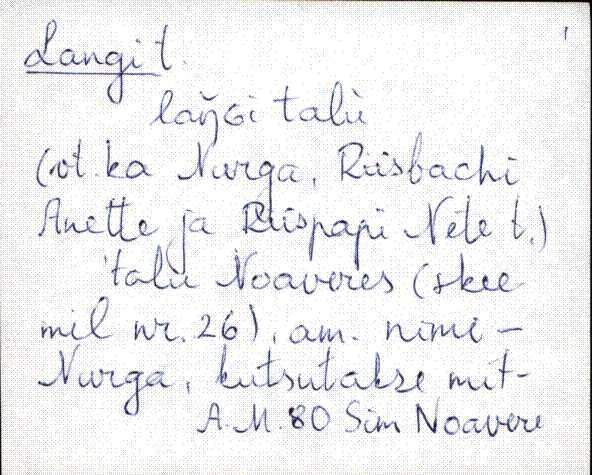 Langi t.
laŋ̆Gi talù
(vt. ka Nurga, Riisbachi
Anette ja Riispapi Nete t.)
talu Noaveres (skee
mil nr. 26), am. nimi –
Nurga, kutsutakse mit-
A.M. 80 Sim Noavere